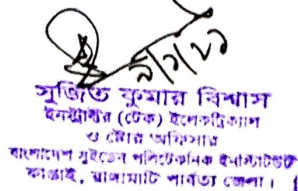 ৭/১/৮১
সুজিত কুমার বিশ্বাস
ইনস্ট্রাক্টর (টেক) ইলেকট্রিক্যাল
ও ষ্টোর অফিসার
বাংলাদেশ সুইডেন পলিটেকনিক ইনস্টিটিউট
কাপ্তাই, রাঙ্গামাটি পার্বত্য জেলা।